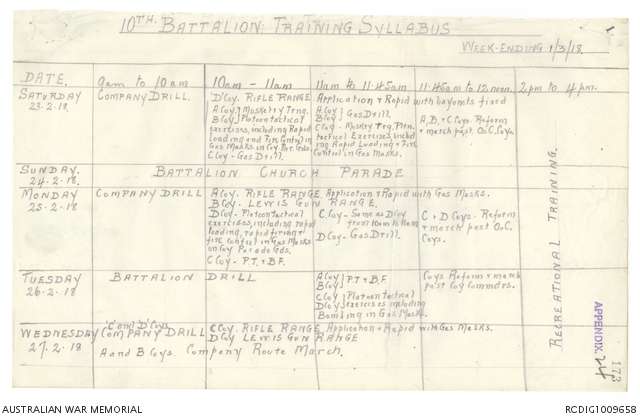 10TH. BATTALION: TRAINING SYLLABUS
WEEK-ENDING 1/3/18.
DATE. 9am to 10am 10am - 11am 11am to 11.45am 11.45am to 12 noon. 2pm to 4pm.
SATURDAY
23.2.18.
COMPANY DRILL.
D Coy. RIFLE RANGE. Application & Rapid with bayonets fixed
A Coy} Musketry Trng.
B Coy} Platoon tactical
exercises, including Rapid
Loading and Fire Control in
Gas Masks in Coy Par. Gds.
C Coy - Gas Drill.
A Coy}
B Coy} Gas Drill.
C Coy - Musktry Trg. Pltn.
tactical Exercises, includ
ing Rapid Loading & Fire
Control in Gas Masks.
A, B, & C Coys. Reform
& march past O.C. Coys.
SUNDAY.
24-2-18.
BATTALION CHURCH PARADE
MONDAY
25-2-18.
COMPANY DRILL
A Coy. RIFLE RANGE Application & Rapid with Gas Masks.
B Coy - LEWIS GUN RANGE.
D Coy - Platoon tactical
exercises, including rapid
loading, rapid firing &
fire control in Gas Masks
on Coy Parade Gds.
C Coy - P.T. & B.F.
C Coy - Same as D Coy
from 10am to 11am
D Coy - Gas Drill.
C & D Coys. Reform
& march past O.C.
Coys.
TUESDAY
26-2-18
BATTALION DRILL
A Coy}
B Coy} P.T. & B.F.
C Coy} Platoon tactical
D Coy} exercises including
Bombing in Gas Masks.
Coys Reform & march
past Coy Commdrs.
WEDNESDAY
27.2.18
'C' and 'D' Coys.
COMPANY DRILL
C Coy. RIFLE RANGE. Application & Rapid with Gas Masks.
D Coy LEWIS GUN RANGE
A and B Coys. Company Route March.
RECREATIONAL TRAINING.
APPENDIX.
173
AUSTRALIAN WAR MEMORIAL
RCDIG1009658